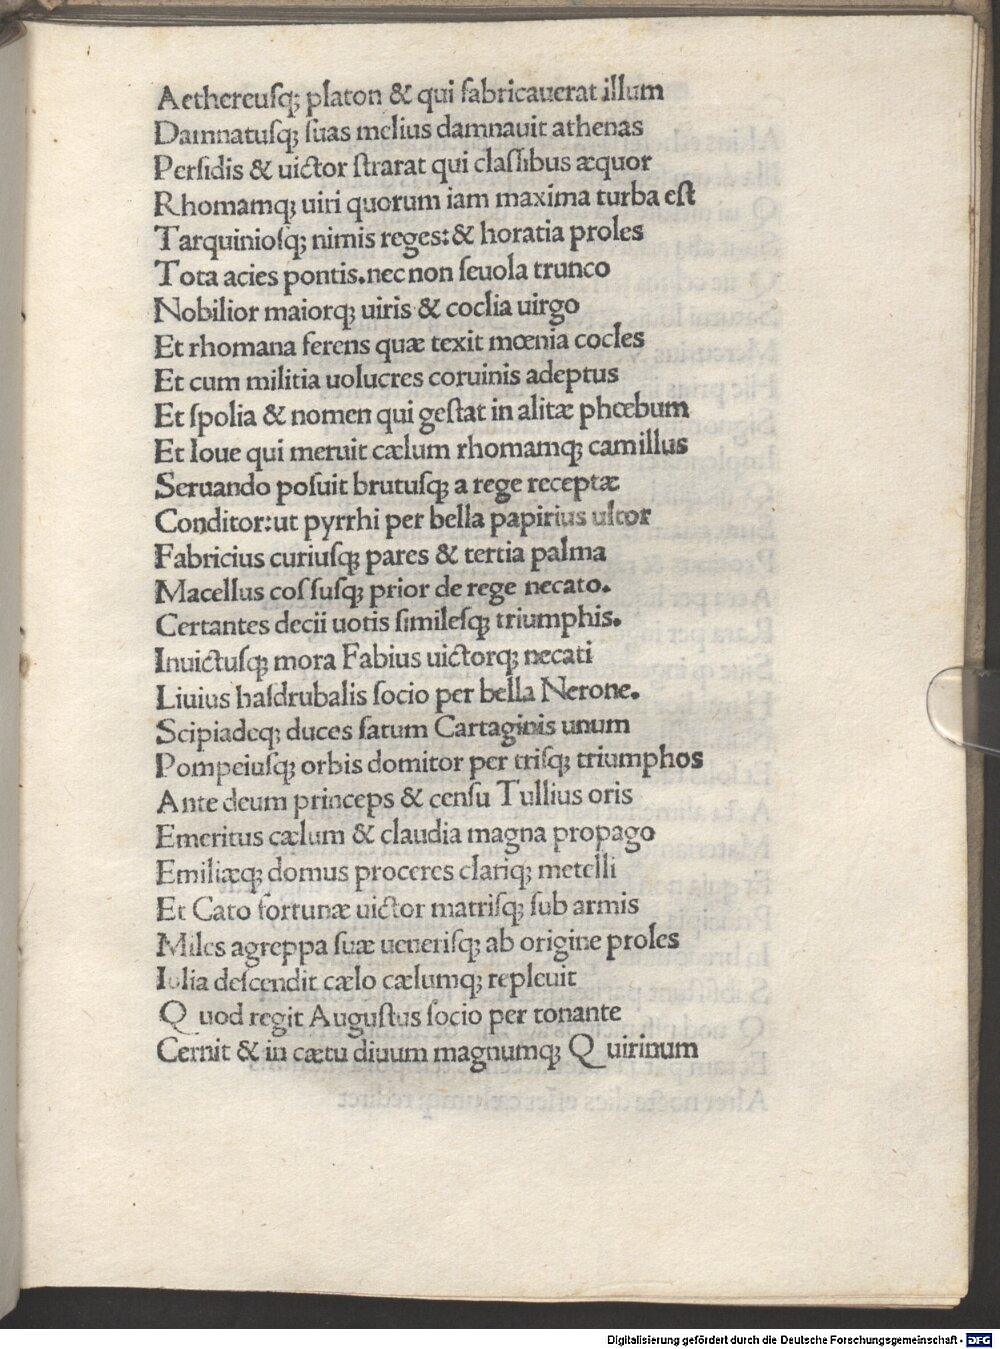 Aethereuſq; platon & qui fabricauerat illum
Damnatuſq; ſuas melius damnauit athenas
Perſidis & uictor ſtrarat qui claſſibus æquor
Rhomamq; uiri quorum iam maxima turba eſt
Tarquinioſq; nimis reges: & horatia proles
Tota acies pontis. nec non ſeuola trunco
Nobilior maiorq; uiris & coclia uirgo
Et rhomana ferens quæ texit mœnia cocles
Et cum militia uolucres coruinis adeptus
Et ſpolia & nomen qui geſtat in alitæ phœbum
Et Ioue qui meruit cælum rhomamq; camillus
Seruando poſuit brutuſq; a rege receptæ
Conditor: ut pyrrhi per bella papirius ultor
Fabricius curiuſq; pares & tertia palma
Macellus coſſuſq; prior de rege necato.
Certantes decii uotis ſimileſq; triumphis.
Inuictuſq; mora Fabius uictorq; necati
Liuius haſdrubalis ſocio per bella Nerone.
Scipiadeq; duces fatum Cartaginis unum
Pompeiuſq; orbis domitor per triſq; triumphos
Ante deum princeps & cenſu Tullius oris
Emeritus cælum & claudia magna propago
Emiliæq; domus proceres clariq; metelli
Et Cato fortunæ uictor matriſq; ſub armis
Miles agreppa ſuæ ueneriſq; ab origine proles
Iulia deſcendit cælo cælumq; repleuit
Quod regit Auguſtus ſocio per tonante
Cernit & in cætu diuum magnumq; Quirinum
Digitalisierung gefördert durch die Deutsche Forschungsgemeinschaft - DFG